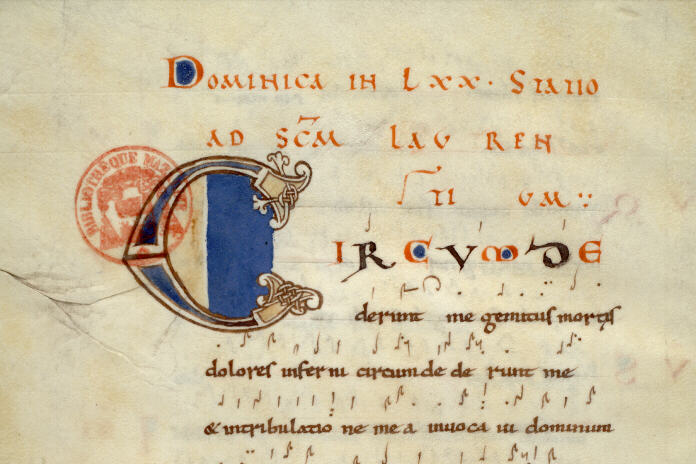 DOMINICA IN LXX · STATIO
AD SCM LAUREN
TIUM
CIRCUMDE
derunt me gemitus mortis
dolores inferni circumdederunt me
& intribulatione mea invocavi dominum
BIBLIOTHÈQUE